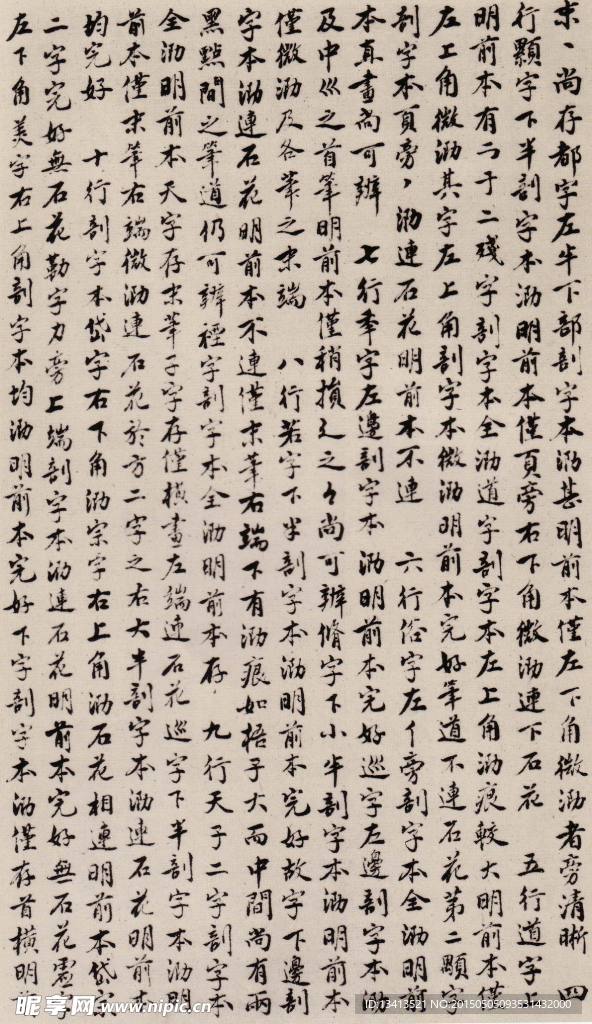 末丶尚存都字左半下部剖字本泐甚明前本僅左下角微泐者旁清晰 四
行顆字下半剖字本泐明前本僅頁旁右下角微泐連下石花 五行道字
明前本有二于二殘字剖字本全泐道字剖字本左上角泐痕較大明前本僅
左上角微泐其字左上角剖字本微泐明前本完好筆道不連石花第二顆字
剖字本頁旁泐連石花明前本不連 六行俗字左亻旁剖字本全泐明前
本真畫尚可辨 七行奉字左邊剖字本泐明前本完好巡字左邊剖字本泐
及中巛之首筆明前本僅稍損辶之丶尚可辨脩字下小半剖字本泐明前本
僅微泐及各筆之末端 八行若字下半剖字本泐明前本完好故字下邊剖
字本泐連石花明前本不連僅末筆右端下有泐痕如梧子大而中間尚有兩
黑點間之筆道仍可辨禋字剖字本全泐明前本存 九行天子二字剖字本
全泐明前本天字存末筆子字存僅橫畫左端連石花巡字下半剖字本泐明
前本僅末筆右端微泐連石花於方二字之右大半剖字本泐連石花明前本
均完好 十行剖字本岱字右下角泐宗字右上角泐石花相連明前本岱宗
二字完好無石花勤字力旁上端剖字本泐連石花明前本完好無石花
左下角美字右上角剖字本均泐明前本完好下字剖字本泐僅存首橫明前
昵享网 www.nipic.cn
ID:13413521 NO:20150505093531432000